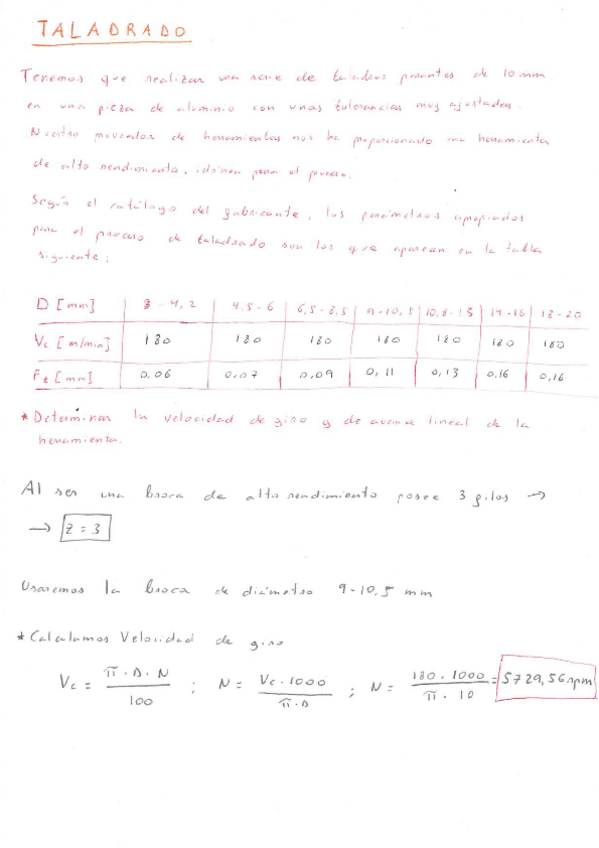 TALADRADO
Tenemos que realizar una serie de taladros pasantes de 10 mm
en una pieza de aluminio con unas tolerancias muy ajustadas.
Nuestro proveedor de herramientas nos ha proporcionado una herramienta
de alto rendimiento, idónea para el proceso.
Según el catálogo del fabricante, los parámetros apropiados
para el proceso de taladrado son los que aparecen en la tabla
siguiente:
D [mm] | 3 - 4,2 | 4,5 - 6 | 6,5 - 8,5 | 9 - 10,5 | 10,8 - 13 | 14 - 16 | 18 - 20
Vc [m/min] | 180 | 180 | 180 | 180 | 180 | 180 | 180
Fz [mm] | 0,06 | 0,07 | 0,09 | 0,11 | 0,13 | 0,16 | 0,16
* Determinar la velocidad de giro y de avance lineal de la
herramienta.
Al ser una broca de alto rendimiento posee 3 filos →
→ Z = 3
Usaremos la broca de diámetro 9-10,5 mm
* Calculamos Velocidad de giro
Vc = π · D · N / 100 ; N = Vc · 1000 / π · D ; N = 180 · 1000 / π · 10 = 5729,56 rpm